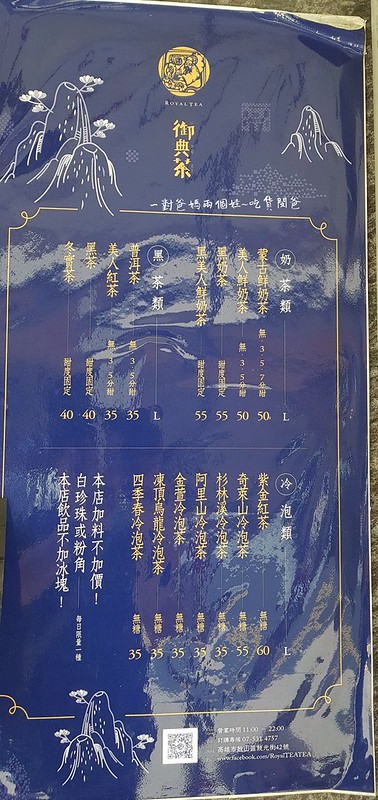 ROYALTEA
御典茶
一對爸媽兩個娃~吃貨閱爸
奶茶類 L
蒙古鮮奶茶 無.3.5.7分甜 50
美人鮮奶茶 無.3.5分甜 50
黑奶茶 甜度固定 55
黑美人鮮奶茶 甜度固定 55
黑茶類 L
普洱茶 無.3.5分甜 35
美人紅茶 無.3.5分甜 35
黑茶 甜度固定 40
冬蜜茶 甜度固定 40
冷泡類 L
紫金紅茶 無糖 60
奇萊山冷泡茶 無糖 55
杉林溪冷泡茶 無糖 35
阿里山冷泡茶 無糖 35
金萱冷泡茶 無糖 35
凍頂烏龍冷泡茶 無糖 35
四季春冷泡茶 無糖 35
本店加料不加價！
白珍珠或粉角 每日限量一種
本店飲品不加冰塊！
營業時間 11:00 ~ 22:00
訂購專線 07-531 4757
高雄市鼓山區鼓元街42號
www.facebook.com/RoyalTEATEA